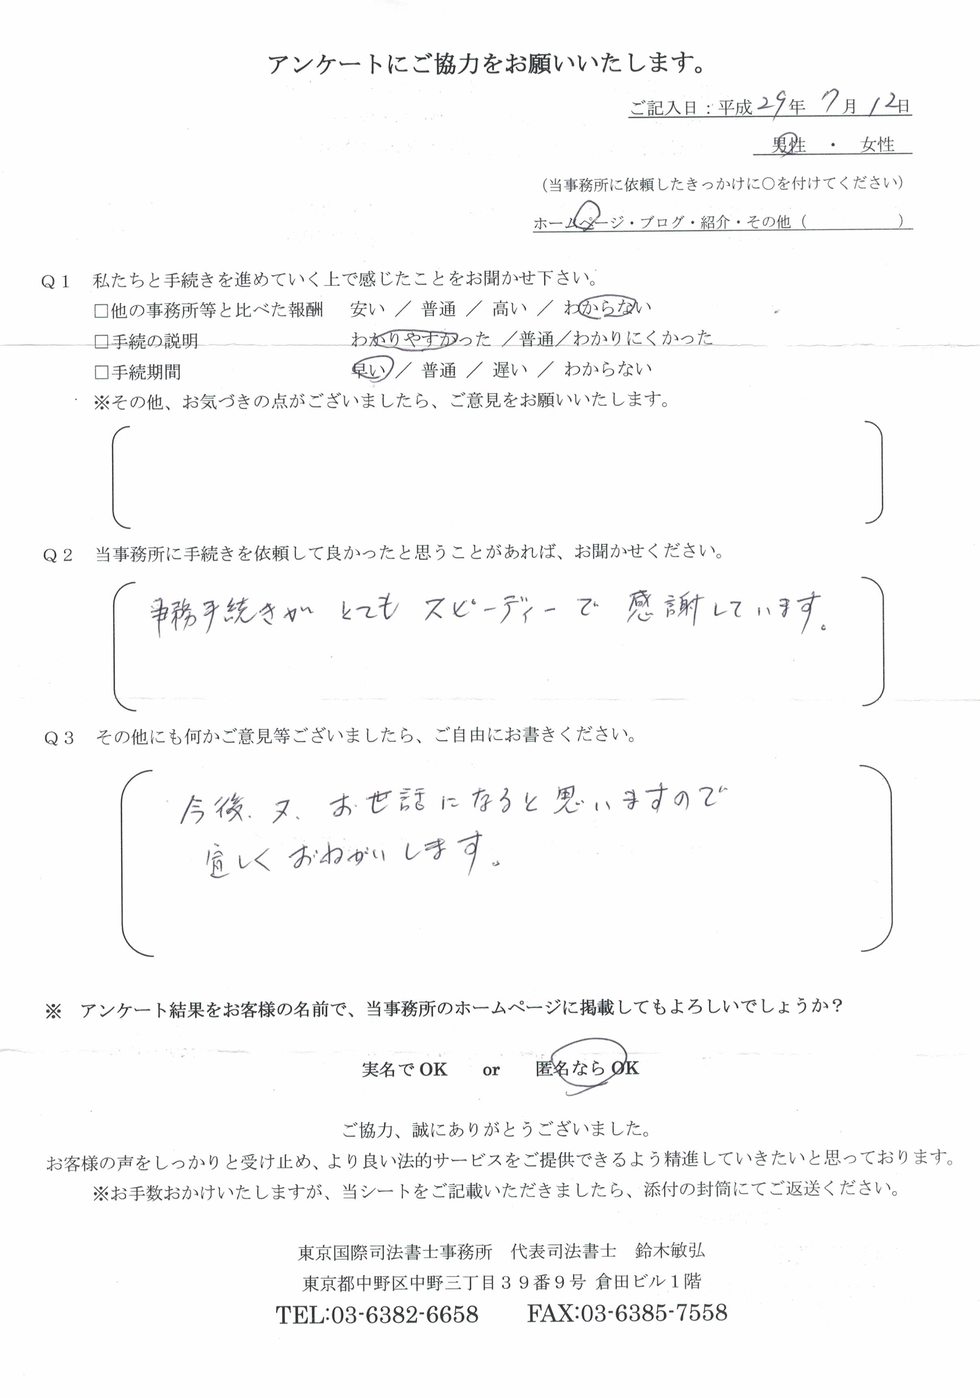 アンケートにご協力をお願いいたします。
ご記入日：平成29年 7月 12日
男性 ・ 女性
（当事務所に依頼したきっかけに○を付けてください）
ホームページ・ブログ・紹介・その他（ ）
Q1 私たちと手続きを進めていく上で感じたことをお聞かせ下さい。
□他の事務所等と比べた報酬 安い ／ 普通 ／ 高い ／ わからない
□手続の説明 わかりやすかった ／普通／わかりにくかった
□手続期間 早い ／ 普通 ／ 遅い ／ わからない
※その他、お気づきの点がございましたら、ご意見をお願いいたします。
Q2 当事務所に手続きを依頼して良かったと思うことがあれば、お聞かせください。
事務手続きが とても スピーディーで 感謝しています。
Q3 その他にも何かご意見等ございましたら、ご自由にお書きください。
今後、又、お世話になると思いますので
宜しくおねがいします。
※ アンケート結果をお客様の名前で、当事務所のホームページに掲載してもよろしいでしょうか？
実名でOK or 匿名ならOK
ご協力、誠にありがとうございました。
お客様の声をしっかりと受け止め、より良い法的サービスをご提供できるよう精進していきたいと思っております。
※お手数おかけいたしますが、当シートをご記載いただきましたら、添付の封筒にてご返送ください。
東京国際司法書士事務所 代表司法書士 鈴木敏弘
東京都中野区中野三丁目３９番９号 倉田ビル１階
TEL:03-6382-6658 FAX:03-6385-7558